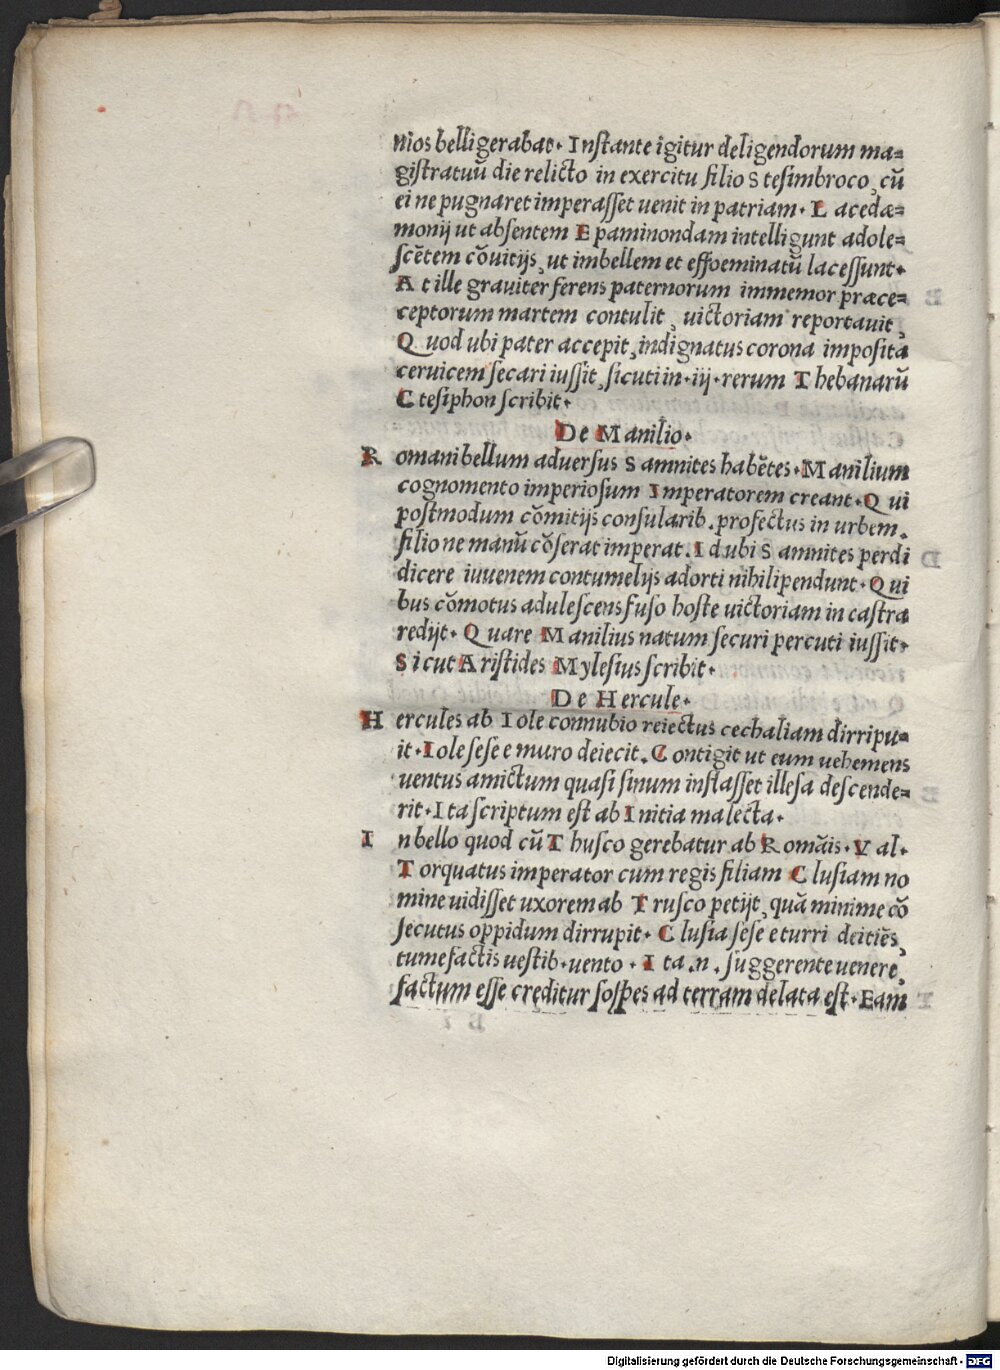 nios belligerabat. Instante igitur deligendorum ma=
gistratuū die relicto in exercitu filio Stesimbroco, cū
ei ne pugnaret imperasset uenit in patriam. Lacedæ=
monij ut absentem Epaminondam intelligunt adole=
scētem cōuitijs, ut imbellem et effoeminatū lacessunt.
At ille grauiter ferens paternorum immemor præce=
ceptorum martem contulit, uictoriam reportauit,
Quod ubi pater accepit, indignatus corona imposita
ceruicem secari iussit, sicuti in. iij. rerum Thebanarū
Ctesiphon scribit.
De Manilio.
Romani bellum aduersus Samnites habētes. Manilium
cognomento imperiosum Imperatorem creant. Qui
postmodum cōmitijs consularib. profectus in urbem.
filio ne manū cōserat imperat. Id ubi Samnites perdi
dicere iuuenem contumelijs adorti nihilipendunt. Qui
bus cōmotus adulescens fuso hoste uictoriam in castra
redijt. Quare Manilius natum securi percuti iussit.
Sicut Aristides Mylesius scribit.
De Hercule.
Hercules ab Iole connubio reiectus cechaliam dirripu=
it. Iole sese e muro deiecit. Contigit ut eum uehemens
uentus amictum quasi sinum inflasset illesa descende=
rit. Ita scriptum est ab Initia malecta.
In bello quod cū Thusco gerebatur ab Romāis. Val.
Torquatus imperator cum regis filiam Clusiam no
mine uidisset uxorem ab Trusco petijt, quā minime cō
secutus oppidum dirrupit. Clusia sese e turri deitiēs,
tumefactis uestib. uento. Ita .n. suggerente uenere,
factum esse creditur sospes ad terram delata est. Eam
Digitalisierung gefördert durch die Deutsche Forschungsgemeinschaft - DFG